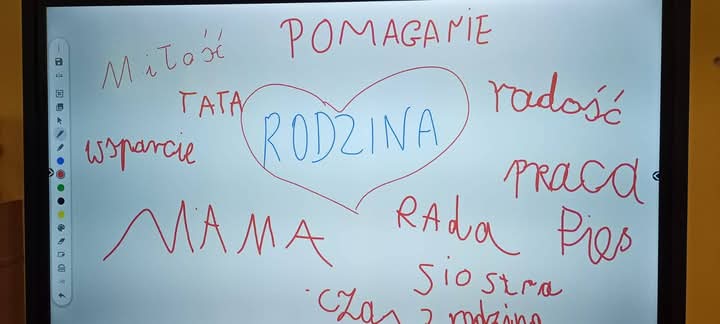 POMAGANIE
Miłość
TATA
radość
RODZINA
wsparcie
PRACA
MAMA
RAda
Pięs
siostra
czas z rodziną